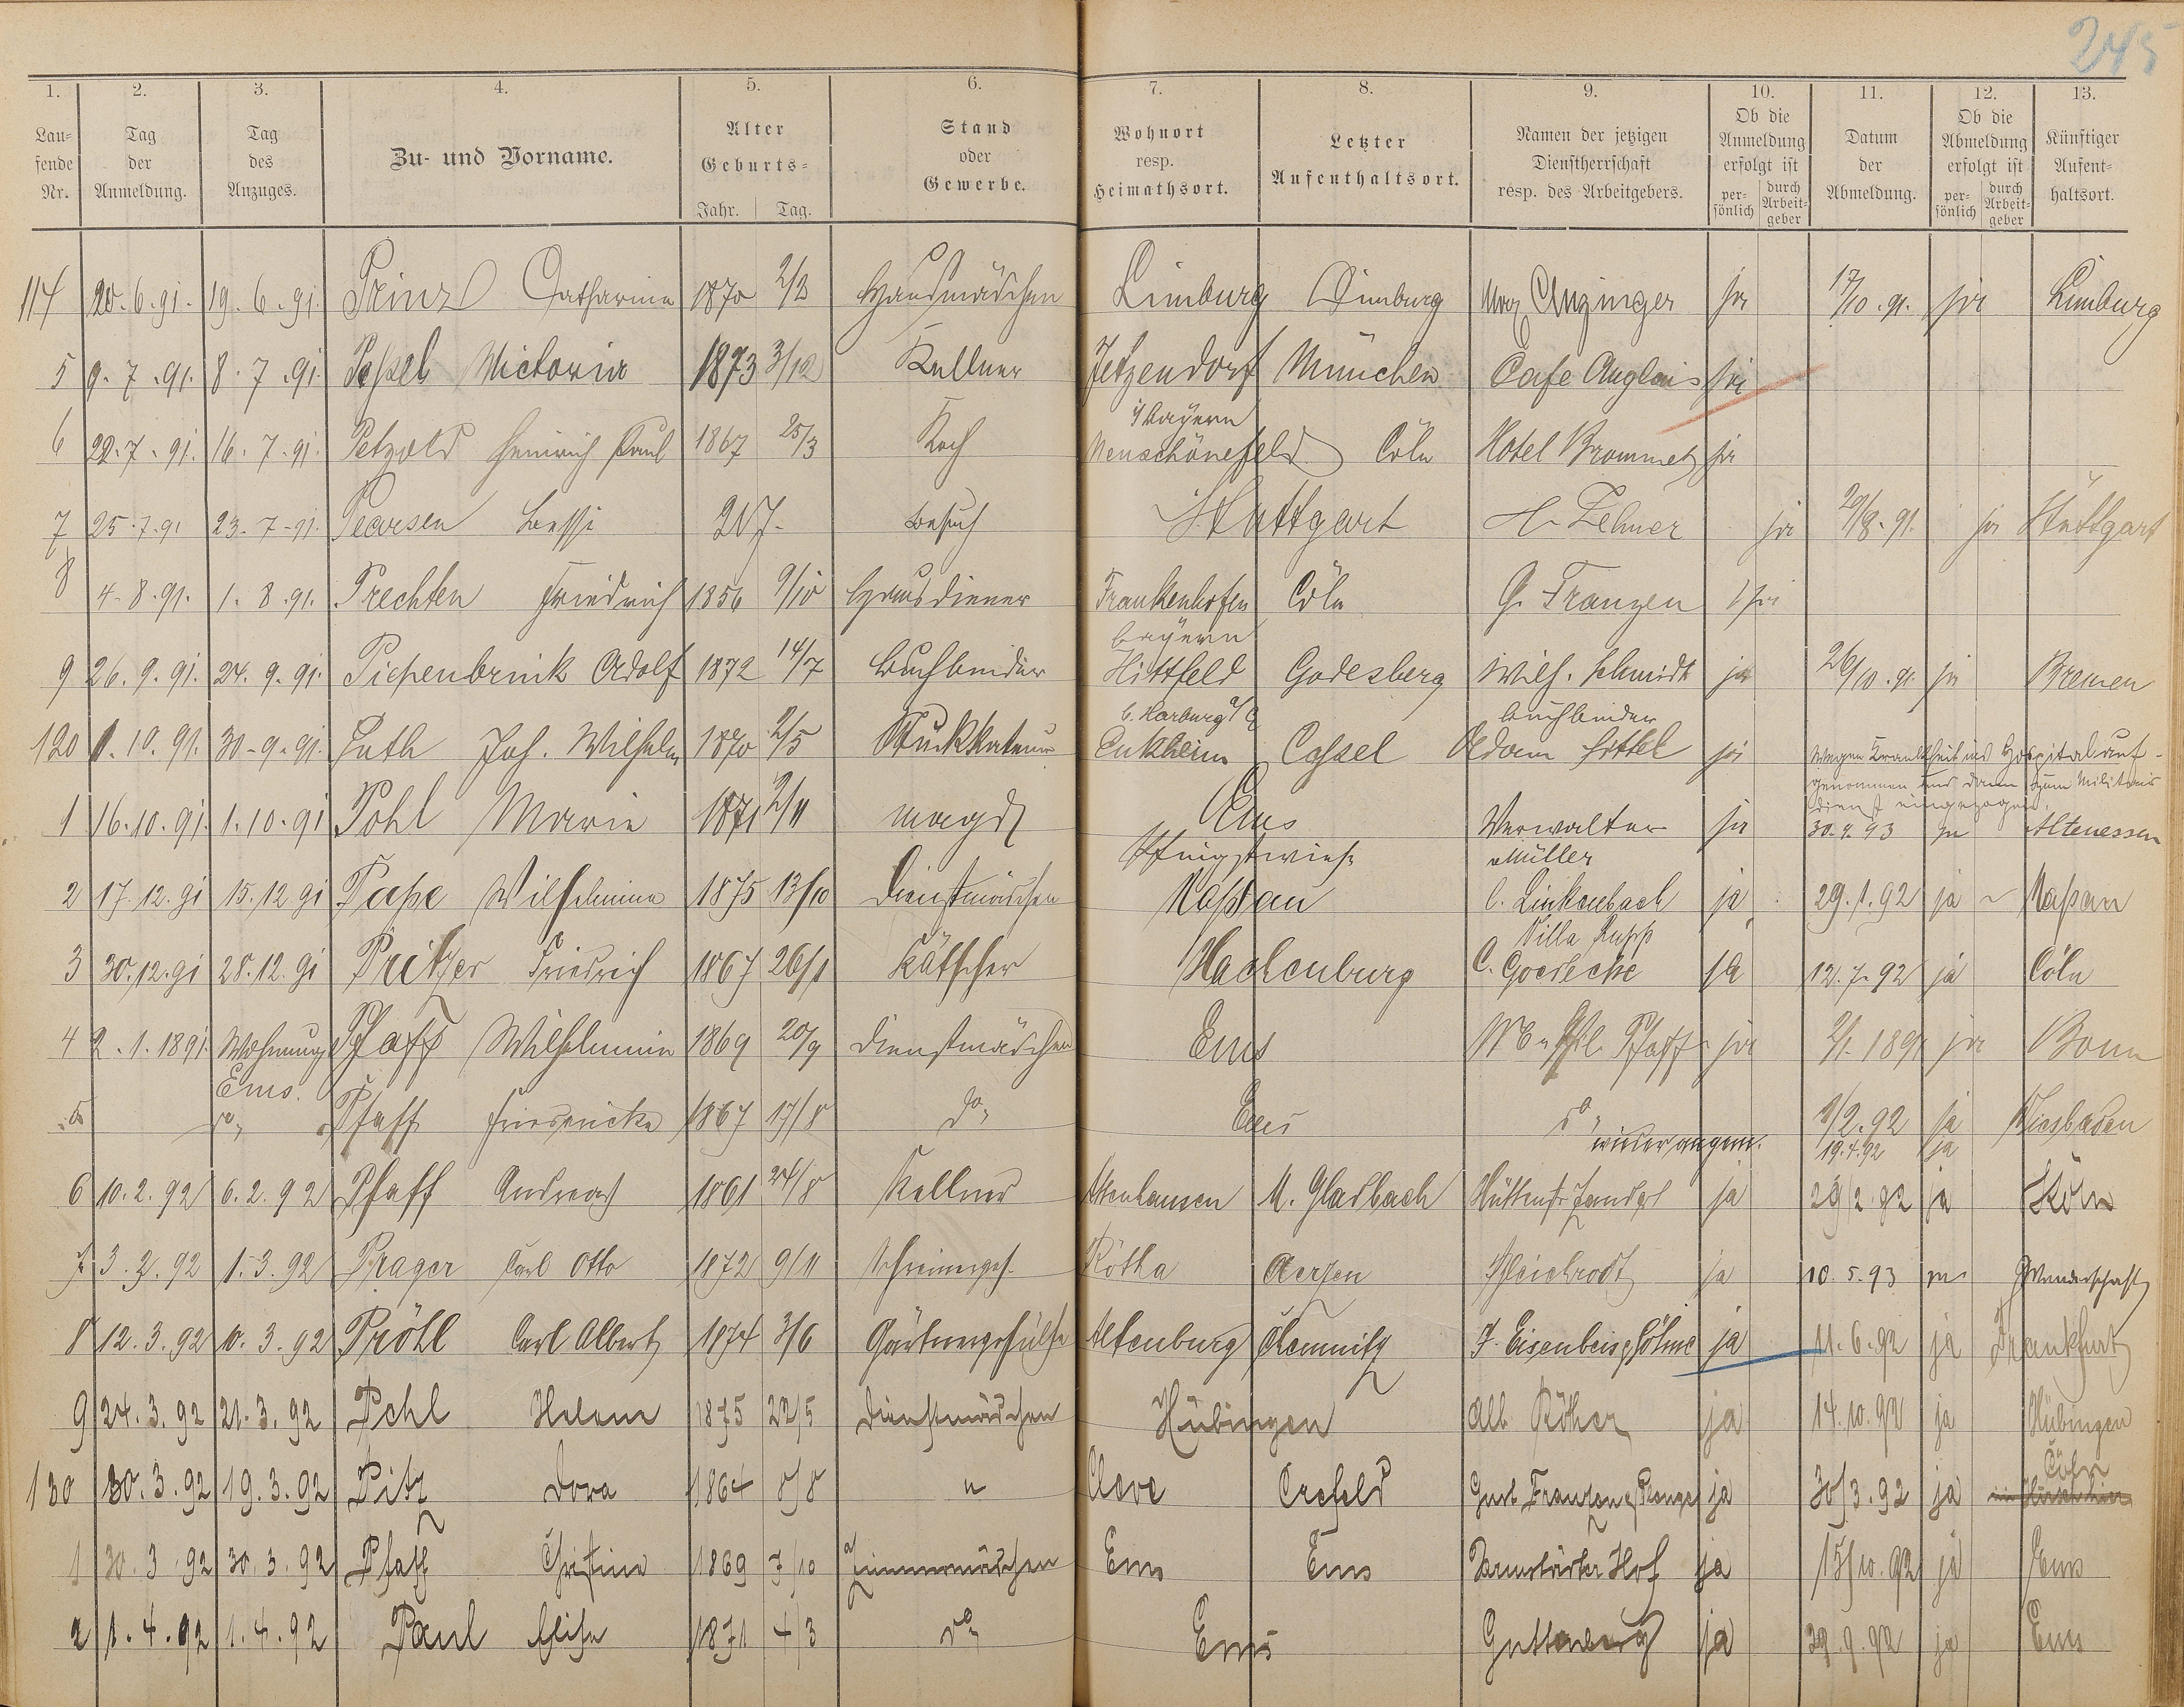 245
1. 2. 3. 4. 5. 6. 7. 8. 9. 10. 11. 12. 13.
Laufende Nr. Tag der Anmeldung. Tag des Anzuges. Zu- und Vorname. Alter Geburts- Jahr. Tag. Stand oder Gewerbe. Wohnort resp. Heimathsort. Letzter Aufenthaltsort. Namen der jetzigen Dienstherrschaft resp. des Arbeitgebers. Ob die Anmeldung erfolgt ist persönlich durch Arbeitgeber Datum der Abmeldung. Ob die Abmeldung erfolgt ist persönlich durch Arbeitgeber Künftiger Aufenthaltsort.
114 20.6.91. 19.6.91. Prinz Catharina 1870 2/2 Hausmädchen Limburg Limburg Anzinger ja 17/10.91. ja Limburg
5 9.7.91. 8.7.91. Victoria 1873 3/12 Kellner Jetzendorf München Cafe Anglais ja
i/Bayern
6 22.7.91. 16.7.91. Petzold Heinrich Paul 1867 25/3 Koch Neuschönefeld Cöln Hotel Brommel ja
7 25.7.91 23.7.91. Pearsen Bessi 20 J. Besuch Stuttgart H. Zelmer ja 29/8.91. ja Stuttgart
8 4.8.91. 1.8.91. Prechten Friedrich 1856 9/10 Hausdiener Frankenhofen Cöln G. Franzen ja
Bayern
9 26.9.91. 24.9.91. Piepenbrink Adolf 1872 14/7 Buchbinder Hittfeld Godesberg Wilh. Schmidt ja 26/10.91 ja Bremen
b. Harburg a/E Buchbinder
120 1.10.91. 30.9.91. Joh. Wilhelm 1870 2/5 Stuckkateur Enkheim Cassel Adam Hittel ja wegen Krankheit ins Hospital auf-
genommen und dann zum Militair
dienst eingezogen.
1 16.10.91. 1.10.91 Pohl Marie 1871 2/11 Magd Ems Verwalter ja 30.9.93 ja Altenessen
Pfingstwiese Müller
2 17.12.91 15.12.91 Pape Wilhelmine 1875 13/10 Dienstmädchen Nassau C. Linkenbach ja 29.1.92 ja Nassau
Villa Rupp
3 30.12.91 28.12.91 Pritzer Friedrich 1867 26/1 Kutscher Hachenburg C. Goedecke ja 12.7.92 ja Cöln
4 2.1.1891. Wohnung Pfaff Wilhelmine 1869 20/9 Dienstmädchen Ems Pfaff ja 2/1.1891 ja Bonn
Ems.
5 do. Pfaff Friedricke 1867 17/8 do. Ems do. 1/2.92 ja Wiesbaden
wieder angem. 19.4.92 ja
6 10.2.92 6.2.92 Pfaff Andreas 1861 24/8 Kellner Attenhausen M. Gladbach ja 29/2.92 ja Köln
7 3.3.92 1.3.92 Prager Carl Otto 1872 9/11 Schreinergeh. Rötha Aerzen Bleichrodt ja 10.5.93 Wanderschaft
8 12.3.92 10.3.92 Pröhl Carl Albert 1874 3/6 Gärtnergehülfe Altenburg Chemnitz J. Eisenbeis Söhne ja 11.6.92 ja Frankfurt
9 24.3.92 21.3.92 Pehl Helene 1875 22/5 Dienstmädchen Hübingen Alb. Röher ja 14.10.92 ja Hübingen
Cöln
130 30.3.92 19.3.92 Pitz Dora 1864 8/8 " Cleve Crefeld Gust. Franzen ja 30/3.92 ja
1 30.3.92 30.3.92 Pfaff Christine 1869 7/10 Zimmermädchen Ems Ems Darmstädter Hof ja 15/10.92 ja Ems
2 1.4.92 1.4.92 Paul Elise 1871 4/3 do. Ems Guttenberg ja 29.9.92 ja Ems